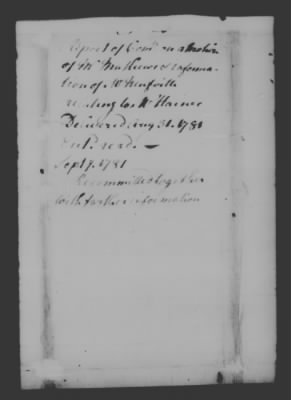 Report of Comee on a Motion
of Mr Mathews & informa-
tion of Mr
relating to Mr
Delivered Aug 31. 1781
read —
Sept 17. 1781
Recommitted together
with farther information